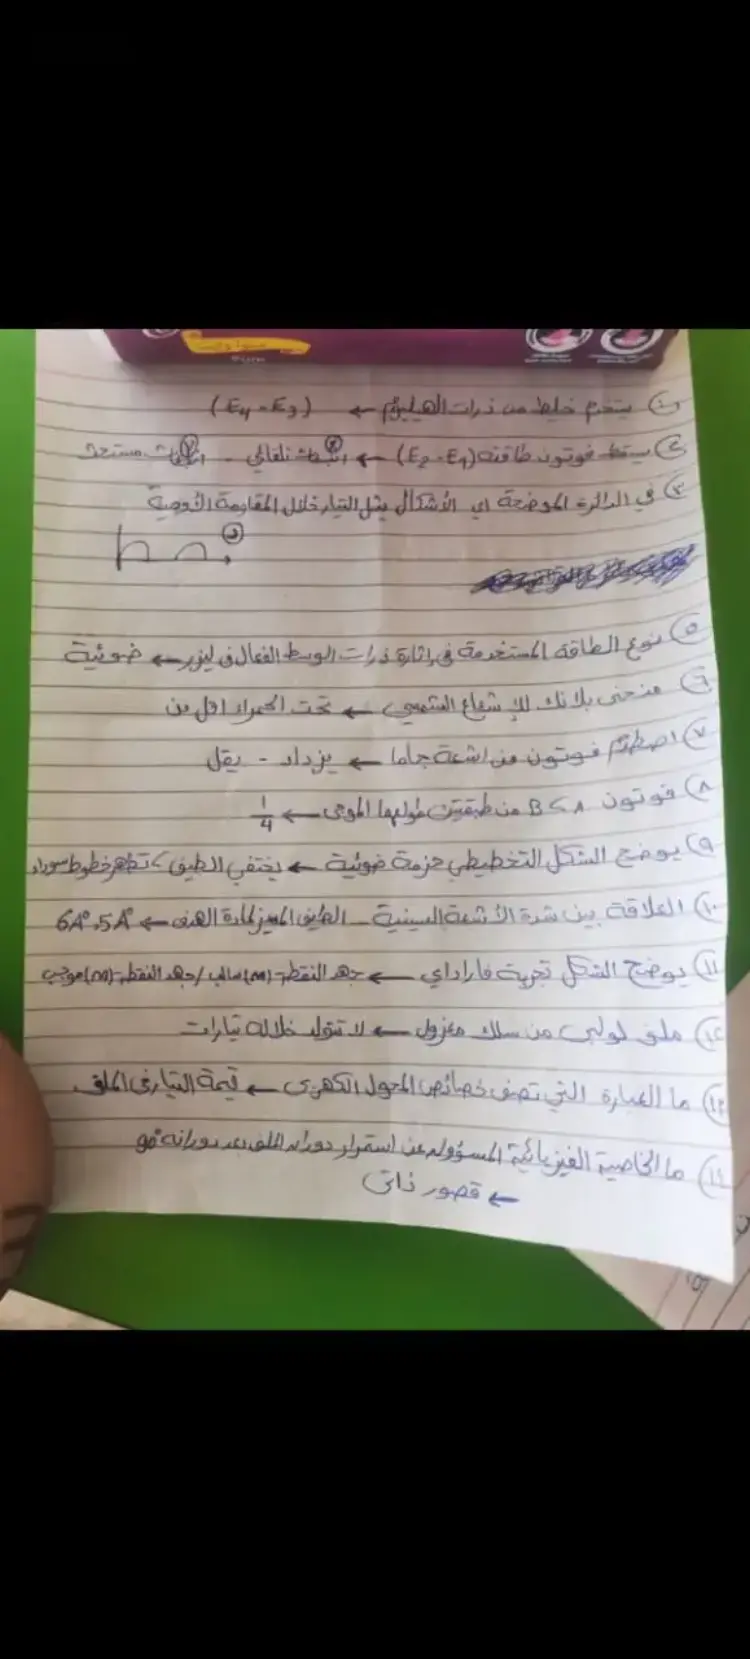 ١ يستخدم خليط من ذرات الهيليوم ← (E4 - E3)
٢ يسقط فوتون طاقته (E2 - E1) ← ① انبعاث تلقائي - ② انبعاث مستحث
٣ في الدائرة الموضحة اي الأشكال يمثل التيار خلال المقاومة الأومية
٥ نوع الطاقة المستخدمة في اثارة ذرات الوسط الفعال في ليزر ← ضوئية
٦ منحنى بلانك للإشعاع الشمسي ← تحت الحمراء اقل من
٧ اصطدم فوتون من اشعة جاما ← يزداد - يقل
٨ فوتون B < A من طبقيتن طولهما الموجى ← 1/4
٩ يوضح الشكل التخطيطي حزمة ضوئية ← يختفي الطيف > تظهر خطوط سوداء
١٠ العلاقة بين شدة الأشعة السينية - الطيف المميز لمادة الهدف ← 6A° , 5A°
١١ يوضح الشكل تجربة فاراداي ← جهد النقطة (m) سالب / جهد النقطة (n) موجب
١٢ ملف لولبى من سلك معزول ← لا تتولد خلاله تيارات
١٣ ما العبارة التي تصف خصائص المحول الكهربى ← قيمة التيار فى الملف
١٤ ما الخاصية الفيزيائية المسؤوله عن استمرار دوران الملف بعد دورانه هو
← قصور ذاتى